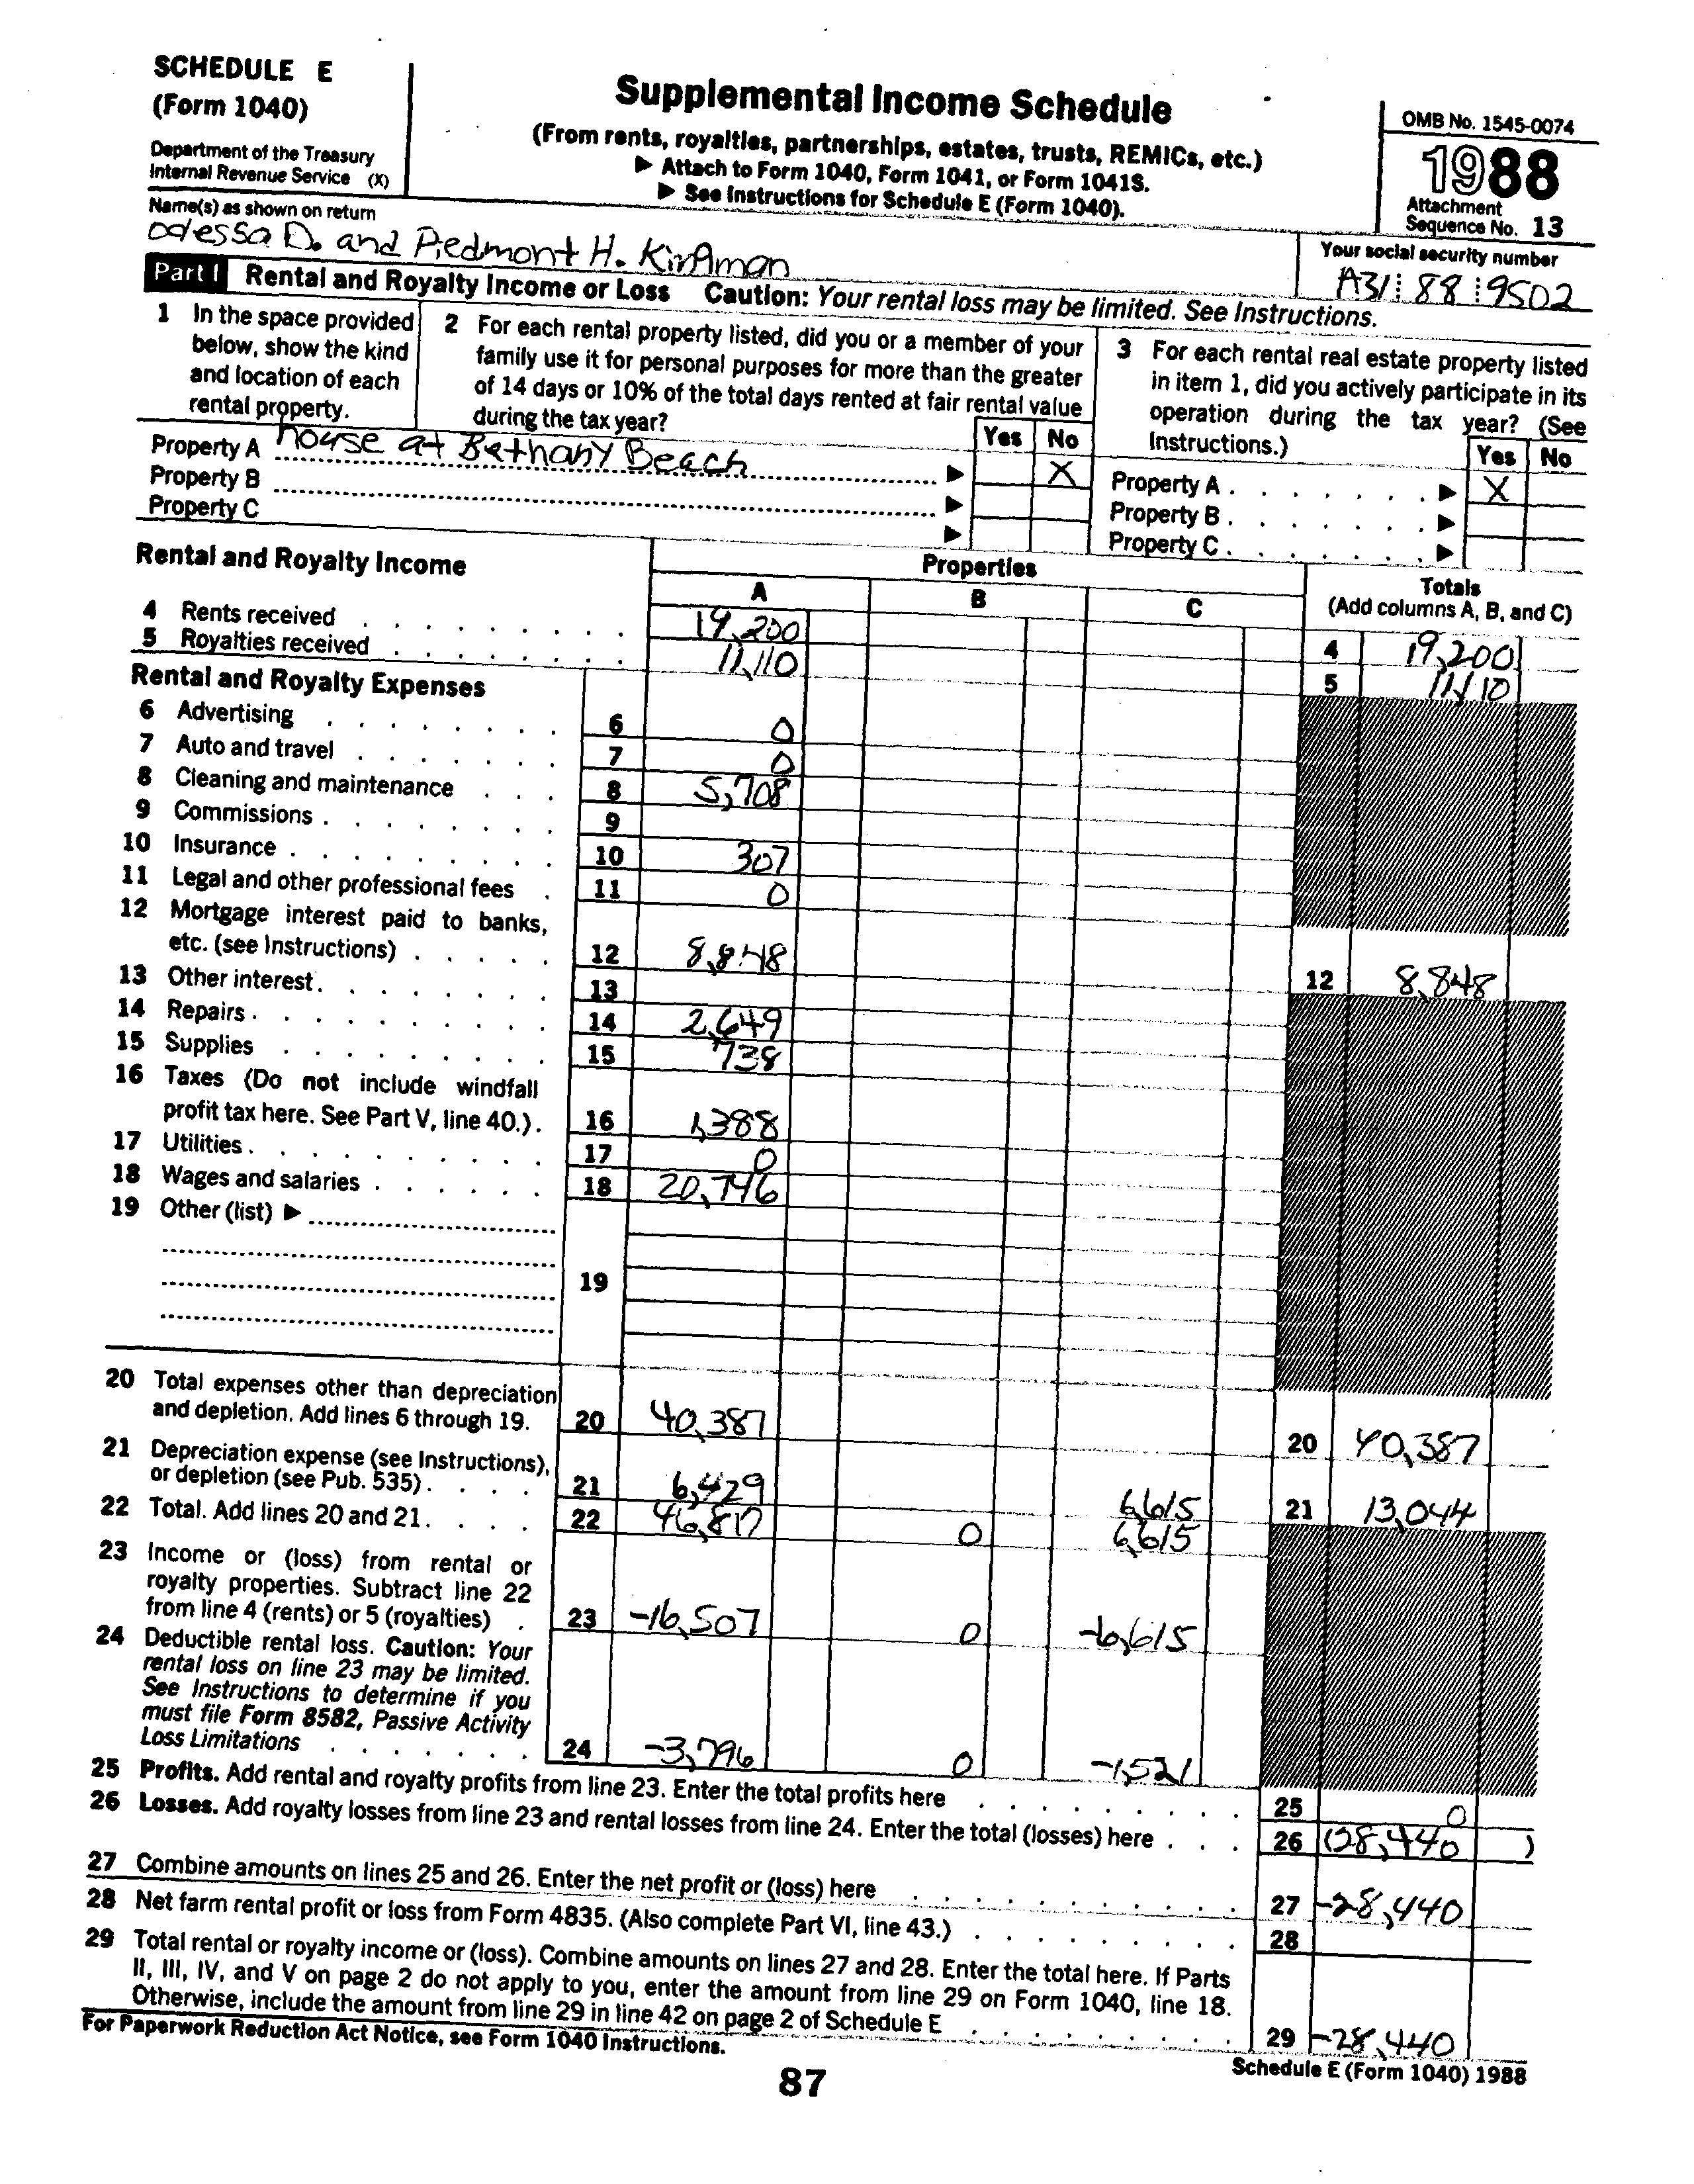 SCHEDULE E
(Form 1040)
Department of the Treasury
Internal Revenue Service (X)
Supplemental Income Schedule
(From rents, royalties, partnerships, estates, trusts, REMICs, etc.)
▶ Attach to Form 1040, Form 1041, or Form 1041S.
▶ See Instructions for Schedule E (Form 1040).
OMB No. 1545-0074
1988
Attachment
Sequence No. 13
Name(s) as shown on return
Odessa D. and Piedmont H.
Your social security number
A31 88 9502
Part I Rental and Royalty Income or Loss Caution: Your rental loss may be limited. See Instructions.
1 In the space provided
below, show the kind
and location of each
rental property.
2 For each rental property listed, did you or a member of your
family use it for personal purposes for more than the greater
of 14 days or 10% of the total days rented at fair rental value
during the tax year?
Yes No
3 For each rental real estate property listed
in item 1, did you actively participate in its
operation during the tax year? (See
Instructions.)
Yes No
Property A house at Bethany Beach ▶ X
Property B ▶
Property C ▶
Property A ▶ X
Property B ▶
Property C ▶
Rental and Royalty Income
Properties
A B C
Totals
(Add columns A, B, and C)
4 Rents received 19,200 4 19,200
5 Royalties received 11,110 5 11,110
Rental and Royalty Expenses
6 Advertising 6 0
7 Auto and travel 7 0
8 Cleaning and maintenance 8 5,708
9 Commissions 9
10 Insurance 10 307
11 Legal and other professional fees 11 0
12 Mortgage interest paid to banks,
etc. (see Instructions) 12 8,848 12 8,848
13 Other interest 13
14 Repairs 14 2,649
15 Supplies 15 738
16 Taxes (Do not include windfall
profit tax here. See Part V, line 40.) 16 1,388
17 Utilities 17 0
18 Wages and salaries 18 20,746
19 Other (list) ▶
19
20 Total expenses other than depreciation
and depletion. Add lines 6 through 19. 20 40,387 20 40,387
21 Depreciation expense (see Instructions),
or depletion (see Pub. 535) 21 6,429 6,615 21 13,044
22 Total. Add lines 20 and 21 22 46,817 0 6,615
23 Income or (loss) from rental or
royalty properties. Subtract line 22
from line 4 (rents) or 5 (royalties) 23 -16,507 0 -6,615
24 Deductible rental loss. Caution: Your
rental loss on line 23 may be limited.
See Instructions to determine if you
must file Form 8582, Passive Activity
Loss Limitations 24 -3,796 0 -1,521
25 Profits. Add rental and royalty profits from line 23. Enter the total profits here 25 0
26 Losses. Add royalty losses from line 23 and rental losses from line 24. Enter the total (losses) here 26 (28,440 )
27 Combine amounts on lines 25 and 26. Enter the net profit or (loss) here 27 -28,440
28 Net farm rental profit or loss from Form 4835. (Also complete Part VI, line 43.) 28
29 Total rental or royalty income or (loss). Combine amounts on lines 27 and 28. Enter the total here. If Parts
II, III, IV, and V on page 2 do not apply to you, enter the amount from line 29 on Form 1040, line 18.
Otherwise, include the amount from line 29 in line 42 on page 2 of Schedule E 29 -28,440
For Paperwork Reduction Act Notice, see Form 1040 Instructions.
Schedule E (Form 1040) 1988
87